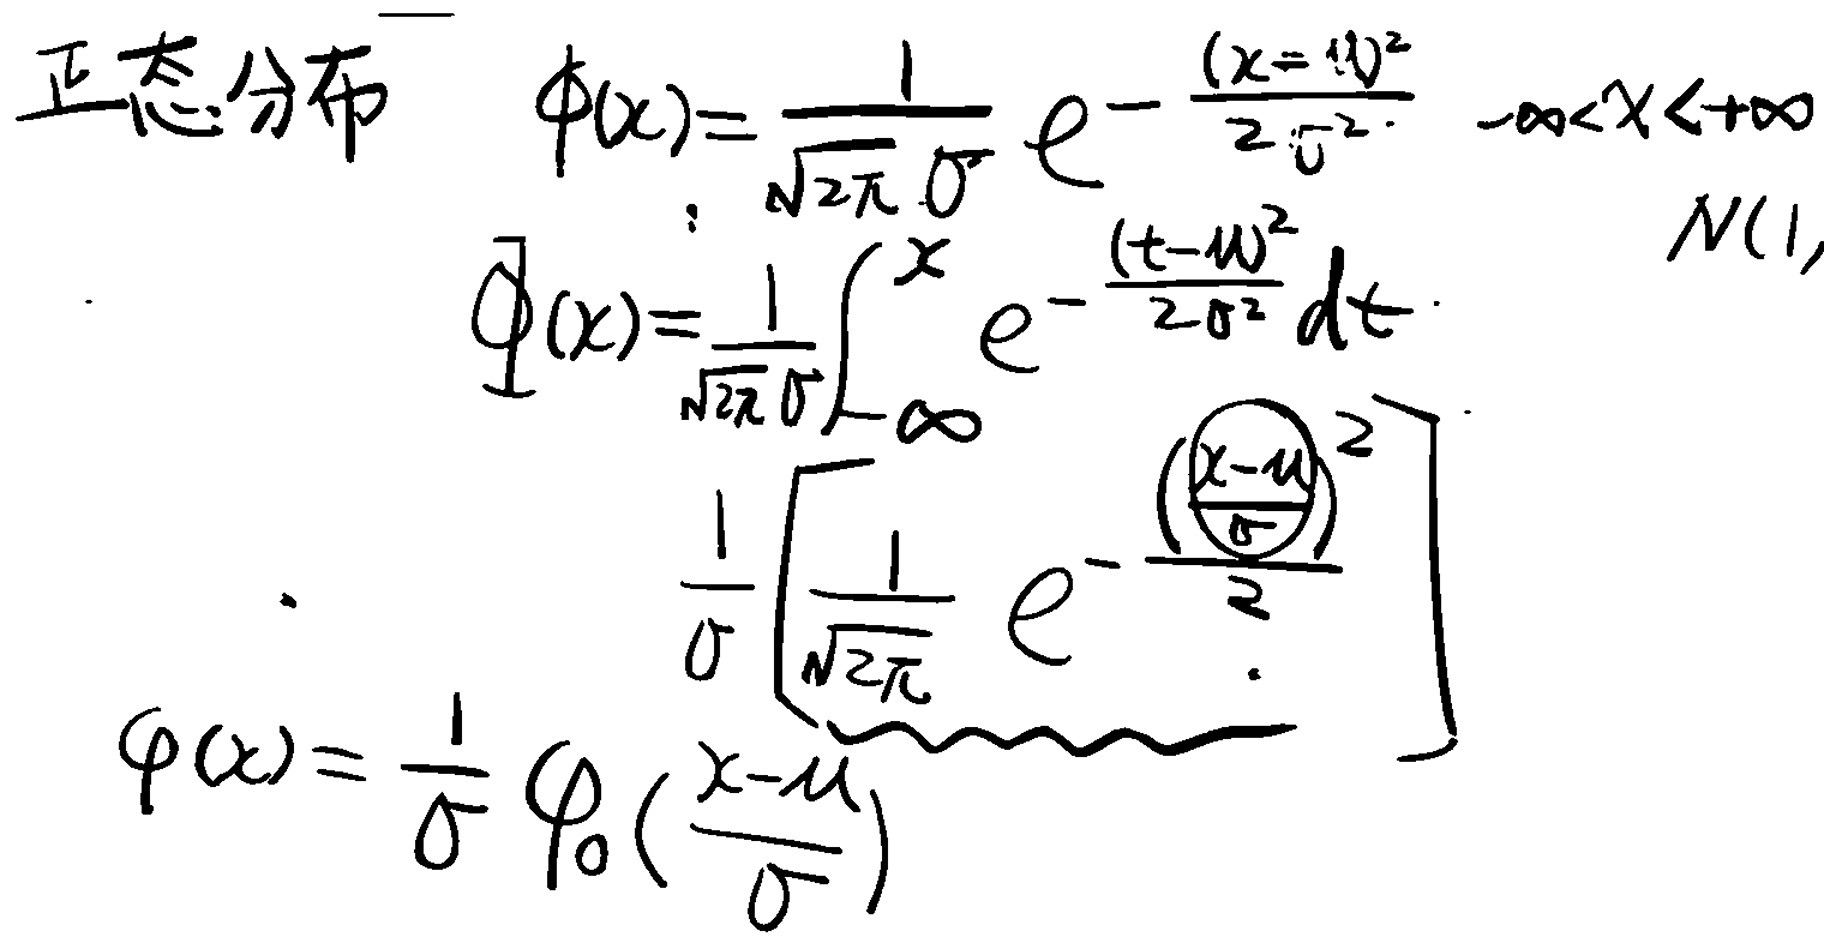 正态分布 φ(x) = \frac{1}{\sqrt{2π} σ} e^{-\frac{(x-μ)^2}{2σ^2}} -∞<x<+∞
N(1,
Φ(x) = \frac{1}{\sqrt{2π} σ} \int_{-∞}^{x} e^{-\frac{(t-μ)^2}{2σ^2}} dt
\frac{1}{σ} [ \frac{1}{\sqrt{2π}} e^{-\frac{(\frac{x-μ}{σ})^2}{2}} ]
φ(x) = \frac{1}{σ} φ_0 (\frac{x-μ}{σ})